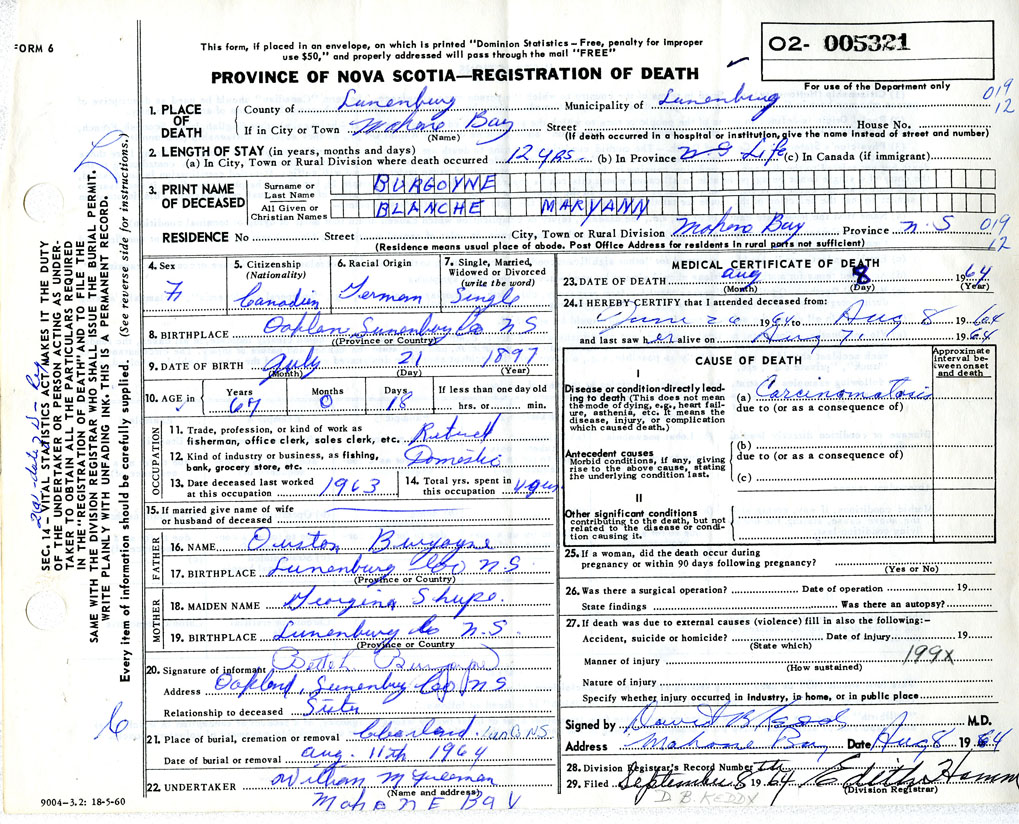 FORM 6
This form, if placed in an envelope, on which is printed "Dominion Statistics – Free, penalty for improper
use $50," and properly addressed will pass through the mail "FREE"
O2- 005321
For use of the Department only
PROVINCE OF NOVA SCOTIA—REGISTRATION OF DEATH
019
12
1. PLACE OF DEATH
County of Lunenburg Municipality of Lunenburg
If in City or Town Mahone Bay Street House No.
(Name) (If death occurred in a hospital or institution, give the name instead of street and number)
2. LENGTH OF STAY (in years, months and days)
(a) In City, Town or Rural Division where death occurred 12 yrs. (b) In Province NS Life (c) In Canada (if immigrant)
3. PRINT NAME OF DECEASED
Surname or Last Name BURGOYNE
All Given or Christian Names BLANCHE MARYANN
RESIDENCE No Street City, Town or Rural Division Mahone Bay Province N.S
(Residence means usual place of abode. Post Office Address for residents in rural parts not sufficient)
019
12
4. Sex F
5. Citizenship (Nationality) Canadian
6. Racial Origin German
7. Single, Married, Widowed or Divorced (write the word) Single
8. BIRTHPLACE Oakland Lunenburg Co N S
(Province or Country)
9. DATE OF BIRTH July 21 1897
(Month) (Day) (Year)
10. AGE in Years 67 Months 0 Days 18 If less than one day old hrs. or min.
OCCUPATION
11. Trade, profession, or kind of work as
fisherman, office clerk, sales clerk, etc. Retired
12. Kind of industry or business, as fishing,
bank, grocery store, etc. Domestic
13. Date deceased last worked at this occupation 1963
14. Total yrs. spent in this occupation
15. If married give name of wife
or husband of deceased
FATHER
16. NAME Burgoyne
17. BIRTHPLACE Lunenburg Co N S
(Province or Country)
MOTHER
18. MAIDEN NAME Georgina Shupe
19. BIRTHPLACE Lunenburg Co N.S.
(Province or Country
20. Signature of informant
Address Oakland, Lunenburg Co N S
Relationship to deceased Sister
21. Place of burial, cremation or removal Clearland Lun Co NS
Date of burial or removal Aug. 11th 1964
22. UNDERTAKER William M Freeman
(Name and address)
MAHONE BAY
9004–3.2: 18-5-60
MEDICAL CERTIFICATE OF DEATH
23. DATE OF DEATH Aug 8 1964
(Month) (Day) (Year)
24. I HEREBY CERTIFY that I attended deceased from:
June 26 1964 to Aug 8 1964
and last saw her alive on Aug 7, 1964
CAUSE OF DEATH
Approximate interval between onset and death
I
Disease or condition directly leading to death (This does not mean the mode of dying, e.g., heart failure, asthenia, etc. It means the disease, injury, or complication which caused death.)
(a) Carcinomatosis
due to (or as a consequence of)
Antecedent causes
Morbid conditions, if any, giving rise to the above cause, stating the underlying condition last.
(b)
due to (or as a consequence of)
(c)
II
Other significant conditions
contributing to the death, but not related to the disease or condition causing it.
25. If a woman, did the death occur during
pregnancy or within 90 days following pregnancy?
(Yes or No)
26. Was there a surgical operation? Date of operation 19
State findings Was there an autopsy?
27. If death was due to external causes (violence) fill in also the following:–
Accident, suicide or homicide? Date of injury 19
(State which)
Manner of injury 199X
(How sustained)
Nature of injury
Specify whether injury occurred in industry, in home, or in public place
Signed by David B Keddy M.D.
Address Mahone Bay Date Aug 8 1964
28. Division Registrar's Record Number
29. Filed September 8 1964 Edith
(Division Registrar)
D. B. KEDDY
SEC. 14 – VITAL STATISTICS ACT MAKES IT THE DUTY
OF THE UNDERTAKER OR PERSON ACTING AS UNDER-
TAKER TO OBTAIN ALL THE PARTICULARS REQUIRED
IN THE "REGISTRATION OF DEATH" AND TO FILE THE
SAME WITH THE DIVISION REGISTRAR WHO SHALL ISSUE THE BURIAL PERMIT.
WRITE PLAINLY WITH UNFADING INK. THIS IS A PERMANENT RECORD.
Every item of information should be carefully supplied. (See reverse side for instructions.)